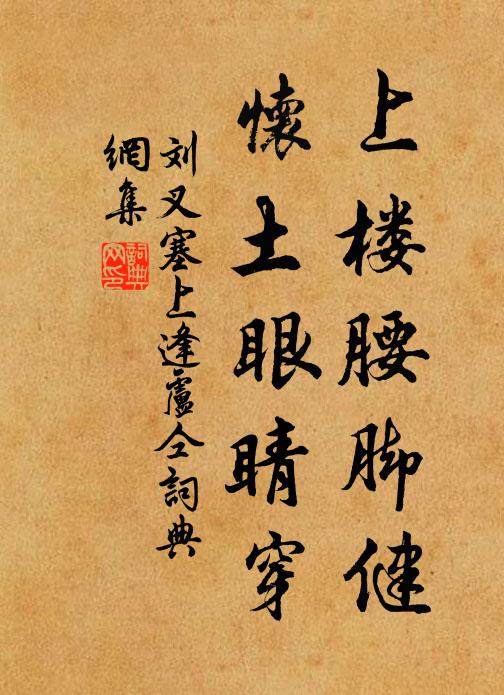 上楼腰脚健
懷土眼睛穿
刘叉塞上逢盧仝詞典
網集
詞典
网印